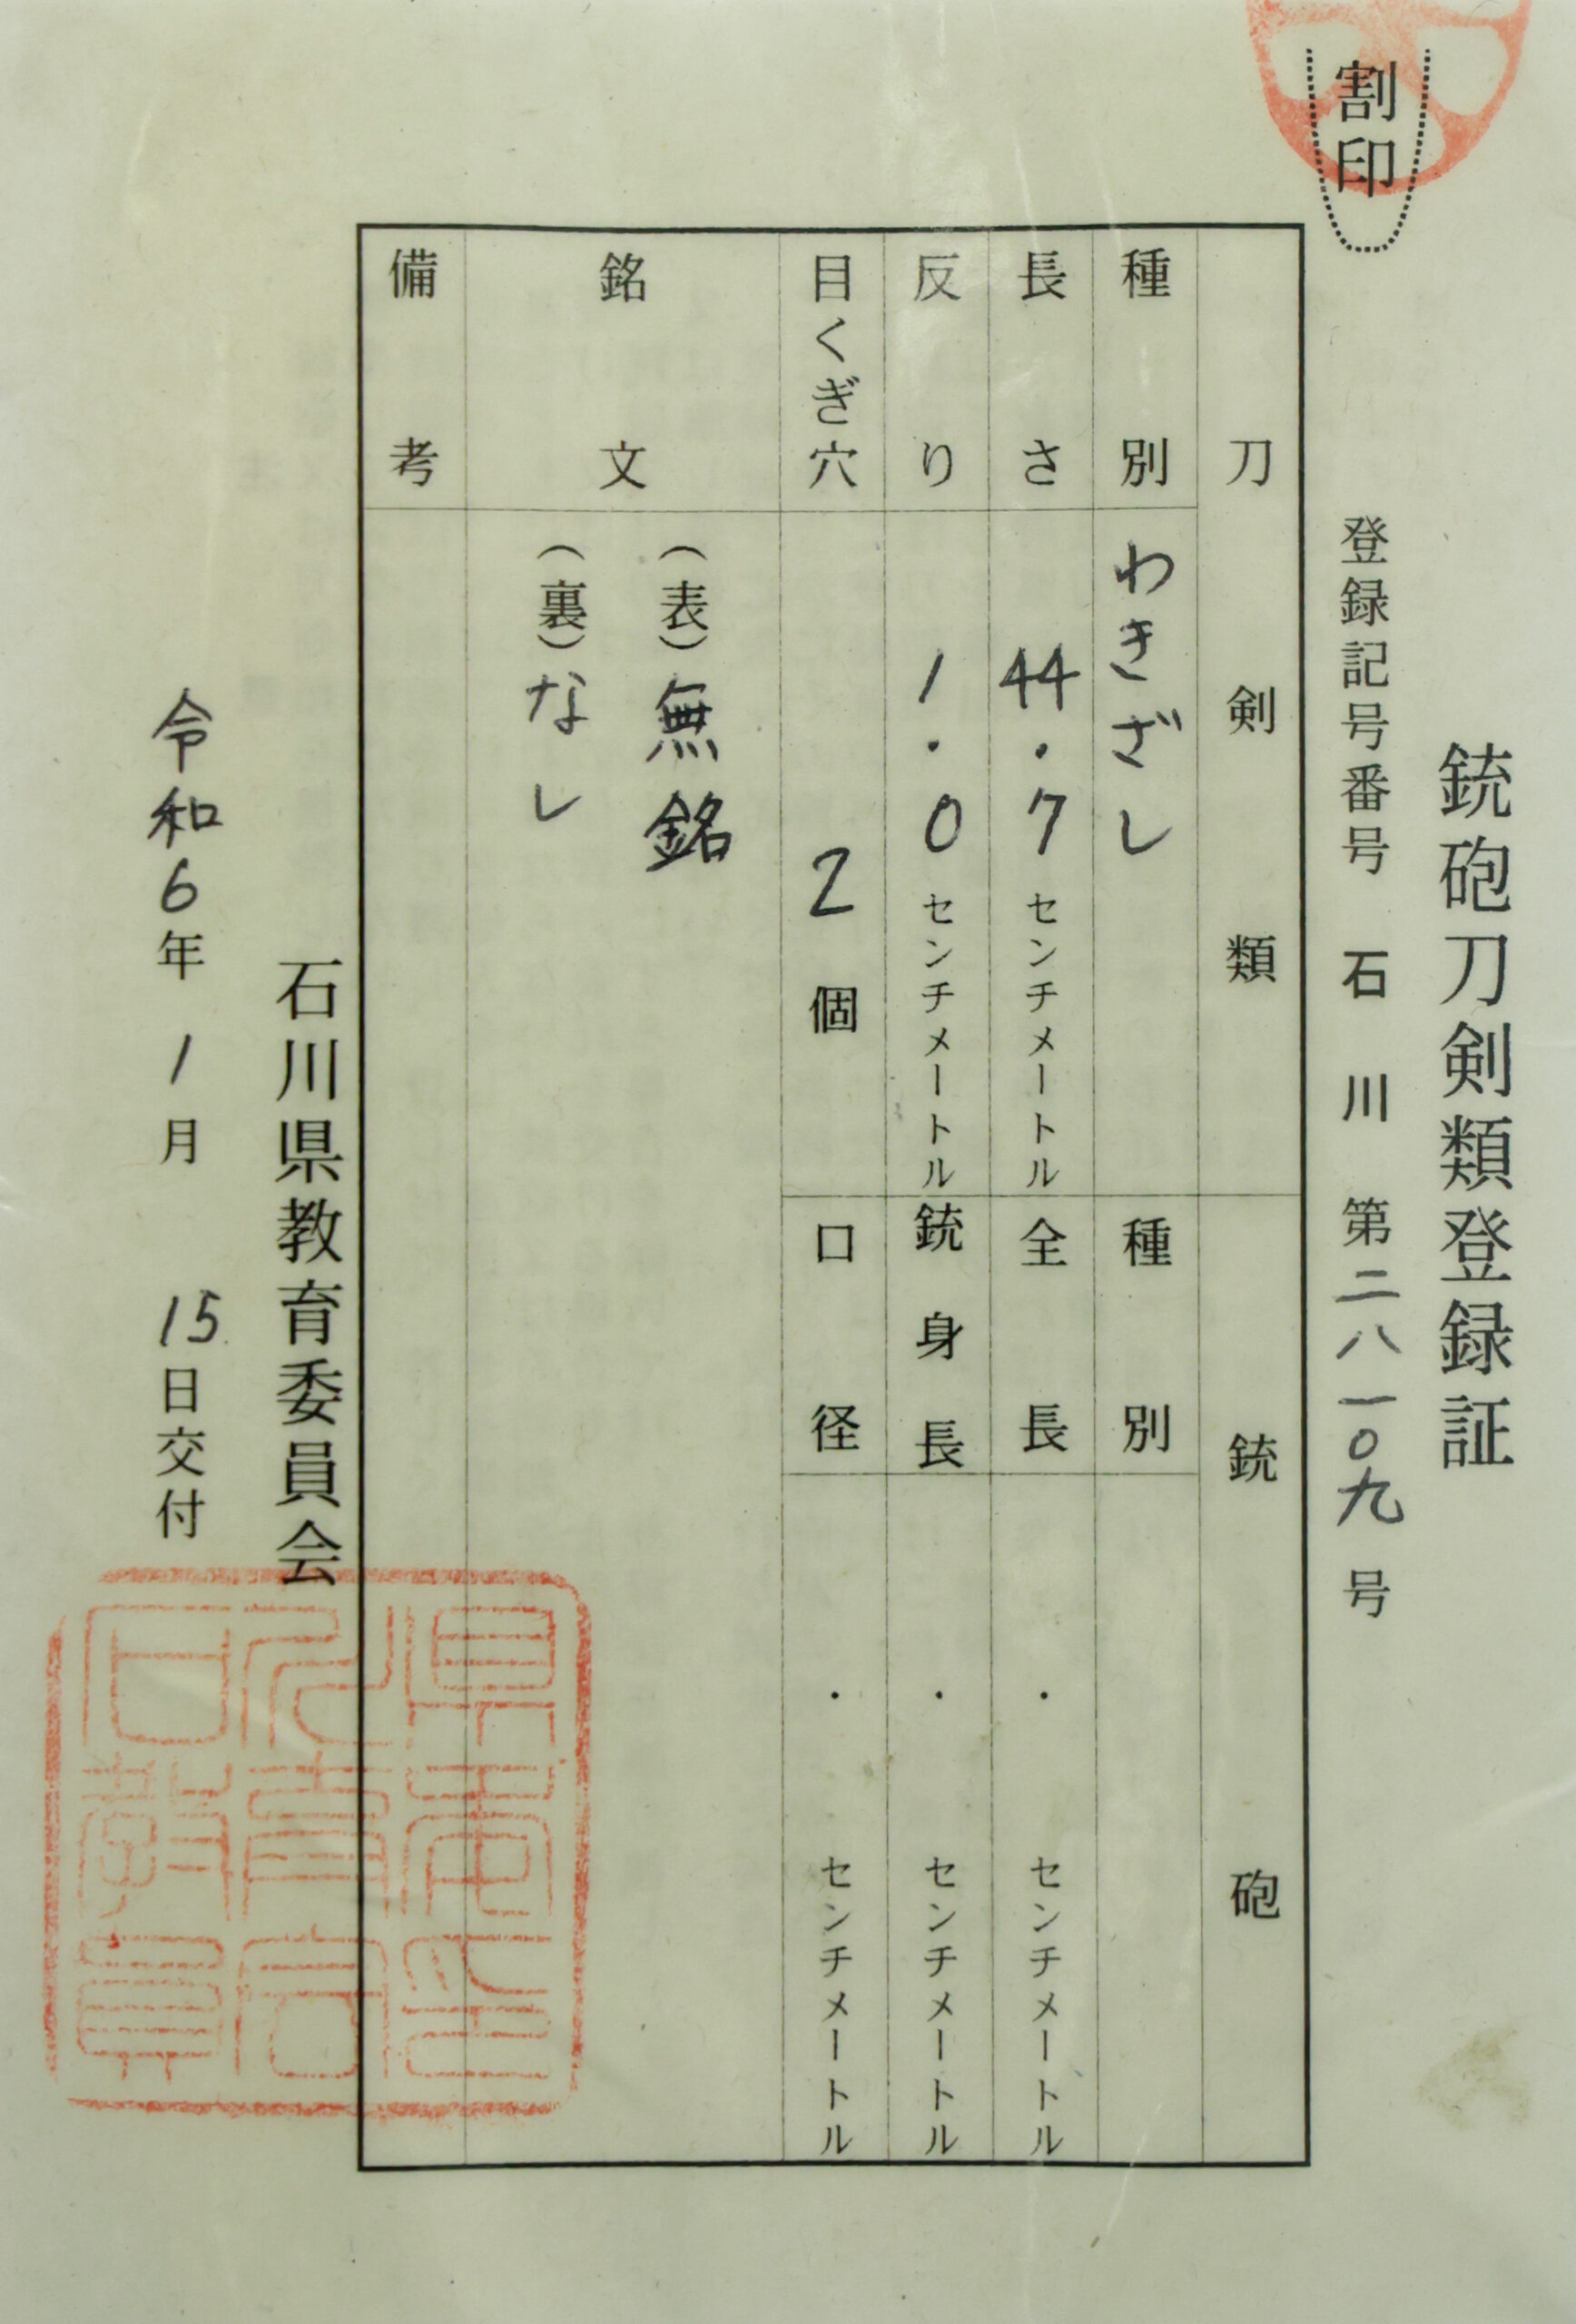 割印
銃砲刀剣類登録証
登録記号番号 石川 第二八一〇九号
刀剣類
種別 わきざし
長さ 44.7センチメートル
反り 1.0センチメートル
目くぎ穴 2個
銃砲
種別
全長 ・ センチメートル
銃身長 ・ センチメートル
口径 ・ センチメートル
銘文
(表)無銘
(裏)なし
備考
石川県教育委員会
令和6年1月15日交付